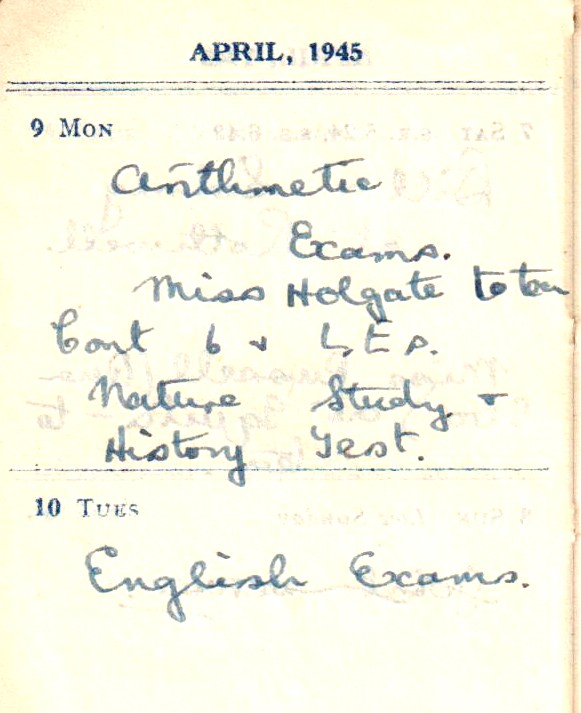 APRIL, 1945
9 MON
Arithmetic
Exams.
Miss Holgate to tea
Cont 6 &
Nature Study &
History Test.
10 TUES
English Exams.